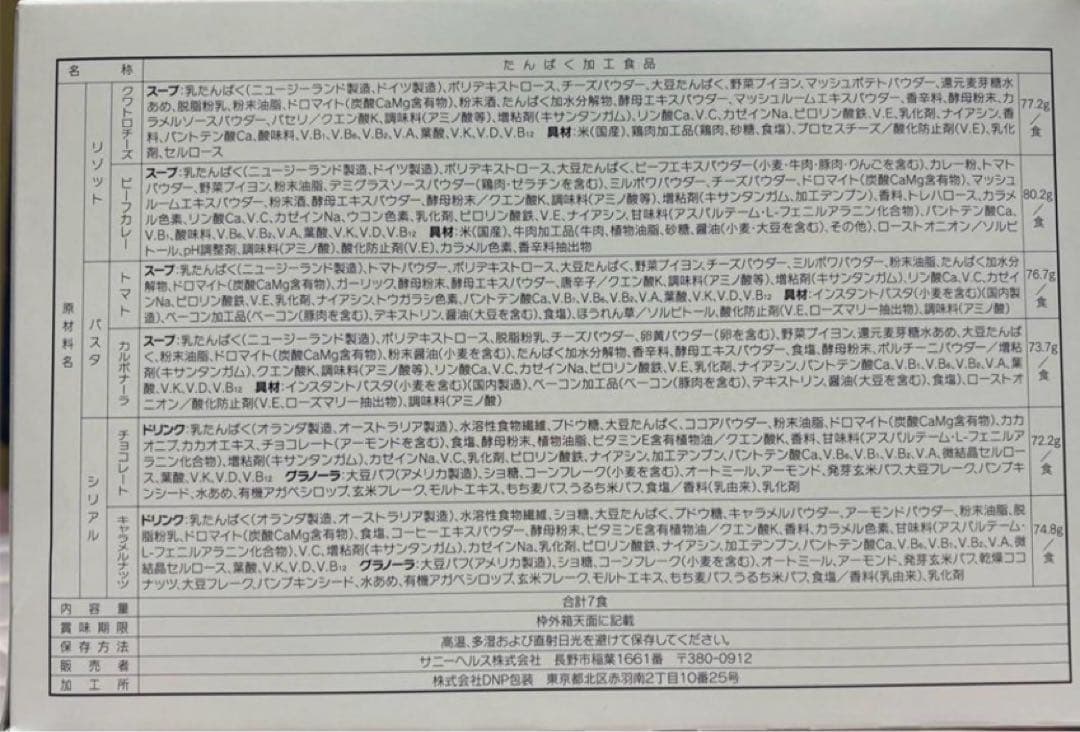 名称 たんぱく加工食品
原材料名
リゾット
クワトロチーズ
スープ:乳たんぱく(ニュージーランド製造、ドイツ製造)、ポリデキストロース、チーズパウダー、大豆たんぱく、野菜ブイヨン、マッシュポテトパウダー、還元麦芽糖水
あめ、脱脂粉乳、粉末油脂、ドロマイト(炭酸CaMg含有物)、粉末酒、たんぱく加水分解物、酵母エキスパウダー、マッシュルームエキスパウダー、香辛料、酵母粉末、カ
ラメルソースパウダー、パセリ/クエン酸K、調味料(アミノ酸等)、増粘剤(キサンタンガム)、リン酸Ca、V.C、カゼインNa、ピロリン酸鉄、V.E、乳化剤、ナイアシン、香
料、パントテン酸Ca、酸味料、V.B₁、V.B₆、V.B₂、V.A、葉酸、V.K、V.D、V.B₁₂ 具材:米(国産)、鶏肉加工品(鶏肉、砂糖、食塩)、プロセスチーズ/酸化防止剤(V.E)、乳化
剤、セルロース
77.2g/食
ビーフカレー
スープ:乳たんぱく(ニュージーランド製造、ドイツ製造)、ポリデキストロース、大豆たんぱく、ビーフエキスパウダー(小麦・牛肉・豚肉・りんごを含む)、カレー粉、トマト
パウダー、野菜ブイヨン、粉末油脂、デミグラスソースパウダー(鶏肉・ゼラチンを含む)、ミルポワパウダー、チーズパウダー、ドロマイト(炭酸CaMg含有物)、マッシュ
ルームエキスパウダー、粉末酒、酵母エキスパウダー、酵母粉末/クエン酸K、調味料(アミノ酸等)、増粘剤(キサンタンガム、加工デンプン)、香料、トレハロース、カラメ
ル色素、リン酸Ca、V.C、カゼインNa、ウコン色素、乳化剤、ピロリン酸鉄、V.E、ナイアシン、甘味料(アスパルテーム・L-フェニルアラニン化合物)、パントテン酸Ca、
V.B₁、酸味料、V.B₆、V.B₂、V.A、葉酸、V.K、V.D、V.B₁₂ 具材:米(国産)、牛肉加工品(牛肉、植物油脂、砂糖、醤油(小麦・大豆を含む)、その他)、ローストオニオン/ソルビ
トール、pH調整剤、調味料(アミノ酸)、酸化防止剤(V.E)、カラメル色素、香辛料抽出物
80.2g/食
パスタ
トマト
スープ:乳たんぱく(ニュージーランド製造)、トマトパウダー、ポリデキストロース、大豆たんぱく、野菜ブイヨン、チーズパウダー、ミルポワパウダー、粉末油脂、たんぱく加水分
解物、ドロマイト(炭酸CaMg含有物)、ガーリック、酵母粉末、酵母エキスパウダー、唐辛子/クエン酸K、調味料(アミノ酸等)、増粘剤(キサンタンガム)、リン酸Ca、V.C、カゼイ
ンNa、ピロリン酸鉄、V.E、乳化剤、ナイアシン、トウガラシ色素、パントテン酸Ca、V.B₁、V.B₆、V.B₂、V.A、葉酸、V.K、V.D、V.B₁₂ 具材:インスタントパスタ(小麦を含む)(国内製
造)、ベーコン加工品(ベーコン(豚肉を含む)、デキストリン、醤油(大豆を含む)、食塩)、ほうれん草/ソルビトール、酸化防止剤(V.E、ローズマリー抽出物)、調味料(アミノ酸)
76.7g/食
カルボナーラ
スープ:乳たんぱく(ニュージーランド製造)、ポリデキストロース、脱脂粉乳、チーズパウダー、卵黄パウダー(卵を含む)、野菜ブイヨン、還元麦芽糖水あめ、大豆たんぱ
く、粉末油脂、ドロマイト(炭酸CaMg含有物)、粉末醤油(小麦を含む)、たんぱく加水分解物、香辛料、酵母エキスパウダー、食塩、酵母粉末、ポルチーニパウダー/増粘
剤(キサンタンガム)、クエン酸K、調味料(アミノ酸等)、リン酸Ca、V.C、カゼインNa、ピロリン酸鉄、V.E、乳化剤、ナイアシン、パントテン酸Ca、V.B₁、V.B₆、V.B₂、V.A、葉
酸、V.K、V.D、V.B₁₂ 具材:インスタントパスタ(小麦を含む)(国内製造)、ベーコン加工品(ベーコン(豚肉を含む)、デキストリン、醤油(大豆を含む)、食塩)、ローストオ
ニオン/酸化防止剤(V.E、ローズマリー抽出物)、調味料(アミノ酸)
73.7g/食
シリアル
チョコレート
ドリンク:乳たんぱく(オランダ製造、オーストラリア製造)、水溶性食物繊維、ブドウ糖、大豆たんぱく、ココアパウダー、粉末油脂、ドロマイト(炭酸CaMg含有物)、カカ
オニブ、カカオエキス、チョコレート(アーモンドを含む)、食塩、酵母粉末、植物油脂、ビタミンE含有植物油/クエン酸K、香料、甘味料(アスパルテーム・L-フェニルア
ラニン化合物)、増粘剤(キサンタンガム)、カゼインNa、V.C、乳化剤、ピロリン酸鉄、ナイアシン、加工デンプン、パントテン酸Ca、V.B₆、V.B₁、V.B₂、V.A、微結晶セルロー
ス、葉酸、V.K、V.D、V.B₁₂ グラノーラ:大豆パフ(アメリカ製造)、ショ糖、コーンフレーク(小麦を含む)、オートミール、アーモンド、発芽玄米パフ、大豆フレーク、パンプキ
ンシード、水あめ、有機アガベシロップ、玄米フレーク、モルトエキス、もち麦パフ、うるち米パフ、食塩/香料(乳由来)、乳化剤
72.2g/食
キャラメルナッツ
ドリンク:乳たんぱく(オランダ製造、オーストラリア製造)、水溶性食物繊維、ショ糖、大豆たんぱく、ブドウ糖、キャラメルパウダー、アーモンドパウダー、粉末油脂、脱
脂粉乳、ドロマイト(炭酸CaMg含有物)、食塩、コーヒーエキスパウダー、酵母粉末、ビタミンE含有植物油/クエン酸K、香料、カラメル色素、甘味料(アスパルテーム・
L-フェニルアラニン化合物)、V.C、増粘剤(キサンタンガム)、カゼインNa、乳化剤、ピロリン酸鉄、ナイアシン、加工デンプン、パントテン酸Ca、V.B₆、V.B₁、V.B₂、V.A、微
結晶セルロース、葉酸、V.K、V.D、V.B₁₂ グラノーラ:大豆パフ(アメリカ製造)、ショ糖、コーンフレーク(小麦を含む)、オートミール、アーモンド、発芽玄米パフ、乾燥ココ
ナッツ、大豆フレーク、パンプキンシード、水あめ、有機アガベシロップ、玄米フレーク、モルトエキス、もち麦パフ、うるち米パフ、食塩/香料(乳由来)、乳化剤
74.8g/食
内容量 合計7食
賞味期限 枠外箱天面に記載
保存方法 高温、多湿および直射日光を避けて保存してください。
販売者 サニーヘルス株式会社 長野市稲葉1661番 〒380-0912
加工所 株式会社DNP包装 東京都北区赤羽南2丁目10番25号